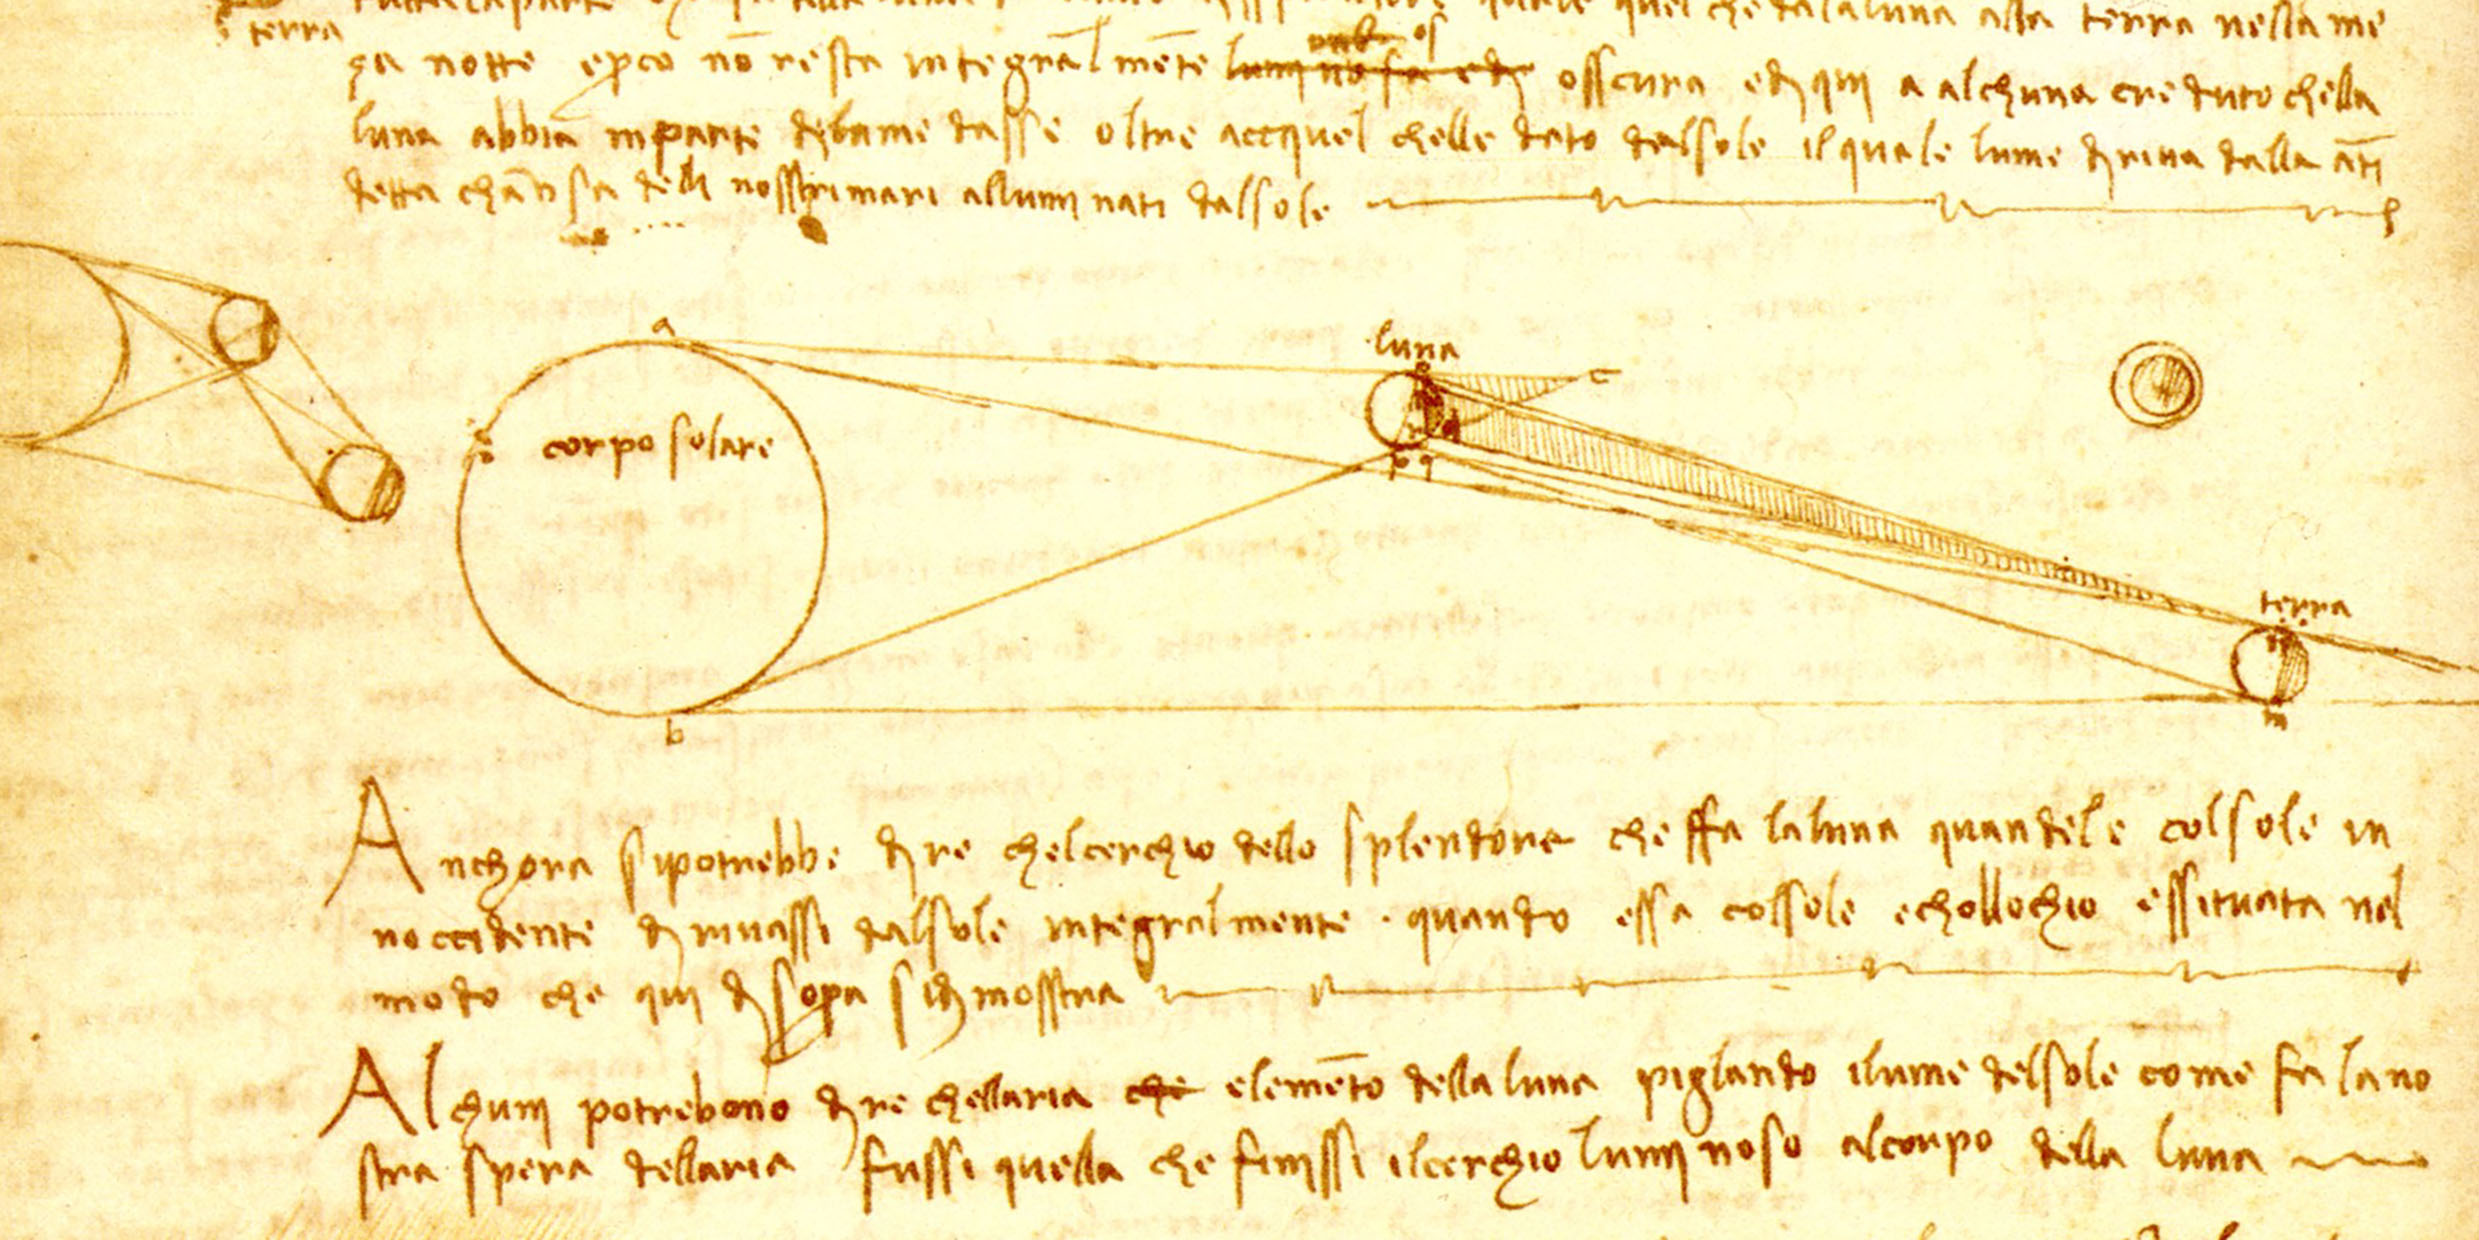 terra
quale quel che dala luna alla terra nella me
ça notte e però nō resta integralmēte osscura ed qui a alchuna creduto chella
luna abbia inparte dllume dasse oltre accquel chelle dato dalsole il quale lume diriva dalla āti
detta chāvsa delli nosstri mari alluminati dalsole
luna
a
c
corpo solare
p q
terra
b
m
Anchora sipotrebbe dire chelcerchio dello splendore cheffa laluna quandele colsole in
noccidente dirivassi dalsole integralmente · quando essa cossole echollochio essituata nel
modo che qui disopa sidimosstra
Alchuni potrebono dire chellaria che elemēto dellaluna pigliando ilume delsole come fa lano
stra spera dellaria fussi quella che finissi ilcerchio luminoso alcorpo della luna